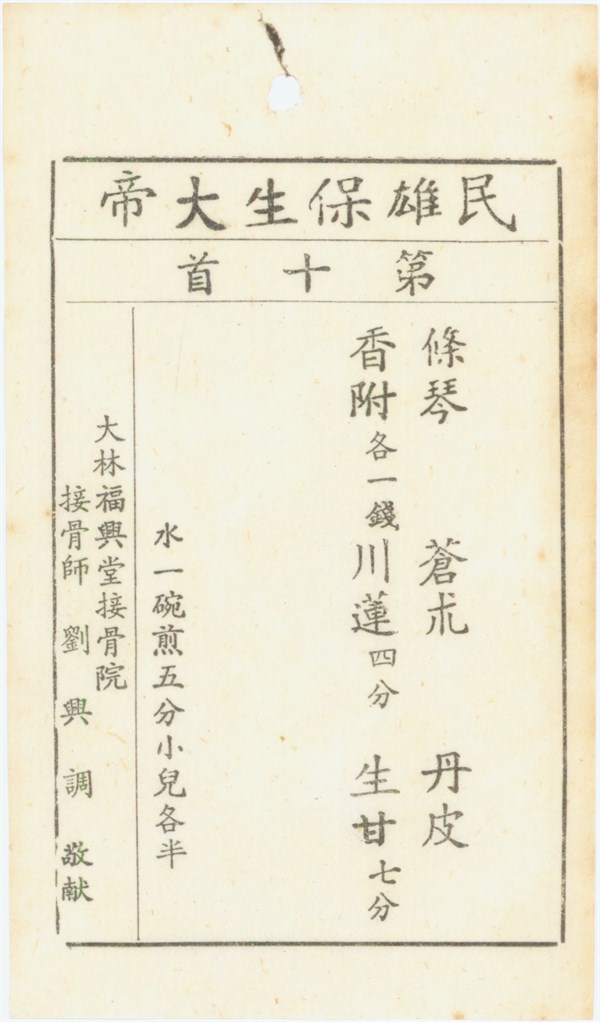 民雄保生大帝
第十首
條琴 蒼朮 丹皮
香附各一錢川蓮四分 生甘七分
水一碗煎五分小兒各半
大林福興堂接骨院
接骨師 劉興調 敬献